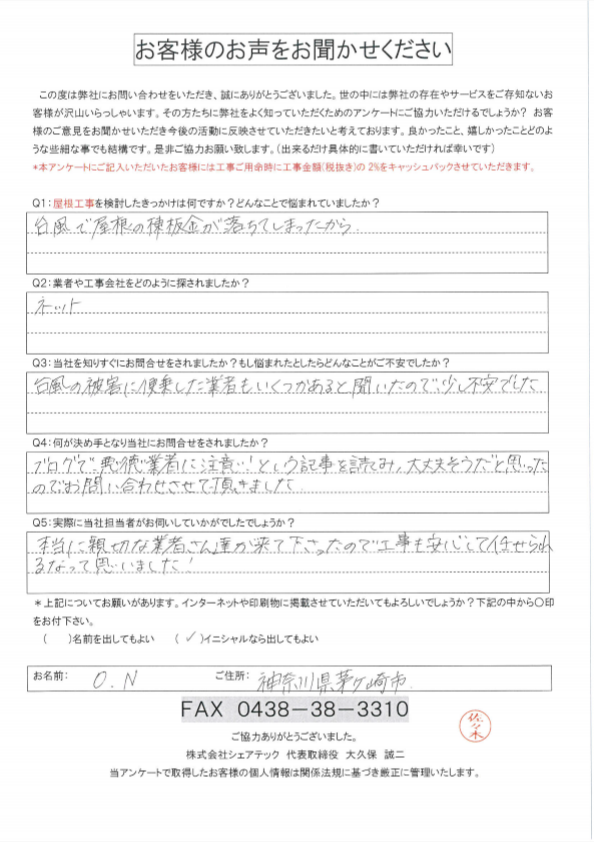 お客様のお声をお聞かせください
この度は弊社にお問い合わせをいただき、誠にありがとうございました。世の中には弊社の存在やサービスをご存知ないお
客様が沢山いらっしゃいます。その方たちに弊社をよく知っていただくためのアンケートにご協力いただけるでしょうか？ お客
様のご意見をお聞かせいただき今後の活動に反映させていただきたいと考えております。良かったこと、嬉しかったことどのよ
うな些細な事でも結構です。是非ご協力お願い致します。（出来るだけ具体的に書いていただければ幸いです）
*本アンケートにご記入いただいたお客様には工事ご用命時に工事金額(税抜き)の 2%をキャッシュバックさせていただきます。
Q1：屋根工事を検討したきっかけは何ですか？どんなことで悩まれていましたか？
台風で屋根の棟板金が落ちてしまったから.
Q2：業者や工事会社をどのように探されましたか？
ネット
Q3：当社を知りすぐにお問合せをされましたか？もし悩まれたとしたらどんなことがご不安でしたか？
台風の被害に便乗した業者もいくつかあると聞いたので、少し不安でした
Q4：何が決め手となり当社にお問合せをされましたか？
ブログで"悪徳業者に注意!"という記事を読み、大丈夫そうだと思った
のでお問い合わせさせて頂きました
Q5：実際に当社担当者がお伺いしていかがでしたでしょうか？
本当に親切な業者さん達が来て下さったので工事も安心して任せられ
るなって思いました！
＊上記についてお願いがあります。インターネットや印刷物に掲載させていただいてもよろしいでしょうか？下記の中から〇印
をお付下さい。
（　）名前を出してもよい　（ ✓ ）イニシャルなら出してもよい
お名前： O.N ご住所： 神奈川県茅ヶ崎市
FAX 0438－38－3310
佐々木
ご協力ありがとうございました。
株式会社シェアテック 代表取締役 大久保 誠二
当アンケートで取得したお客様の個人情報は関係法規に基づき厳正に管理いたします。